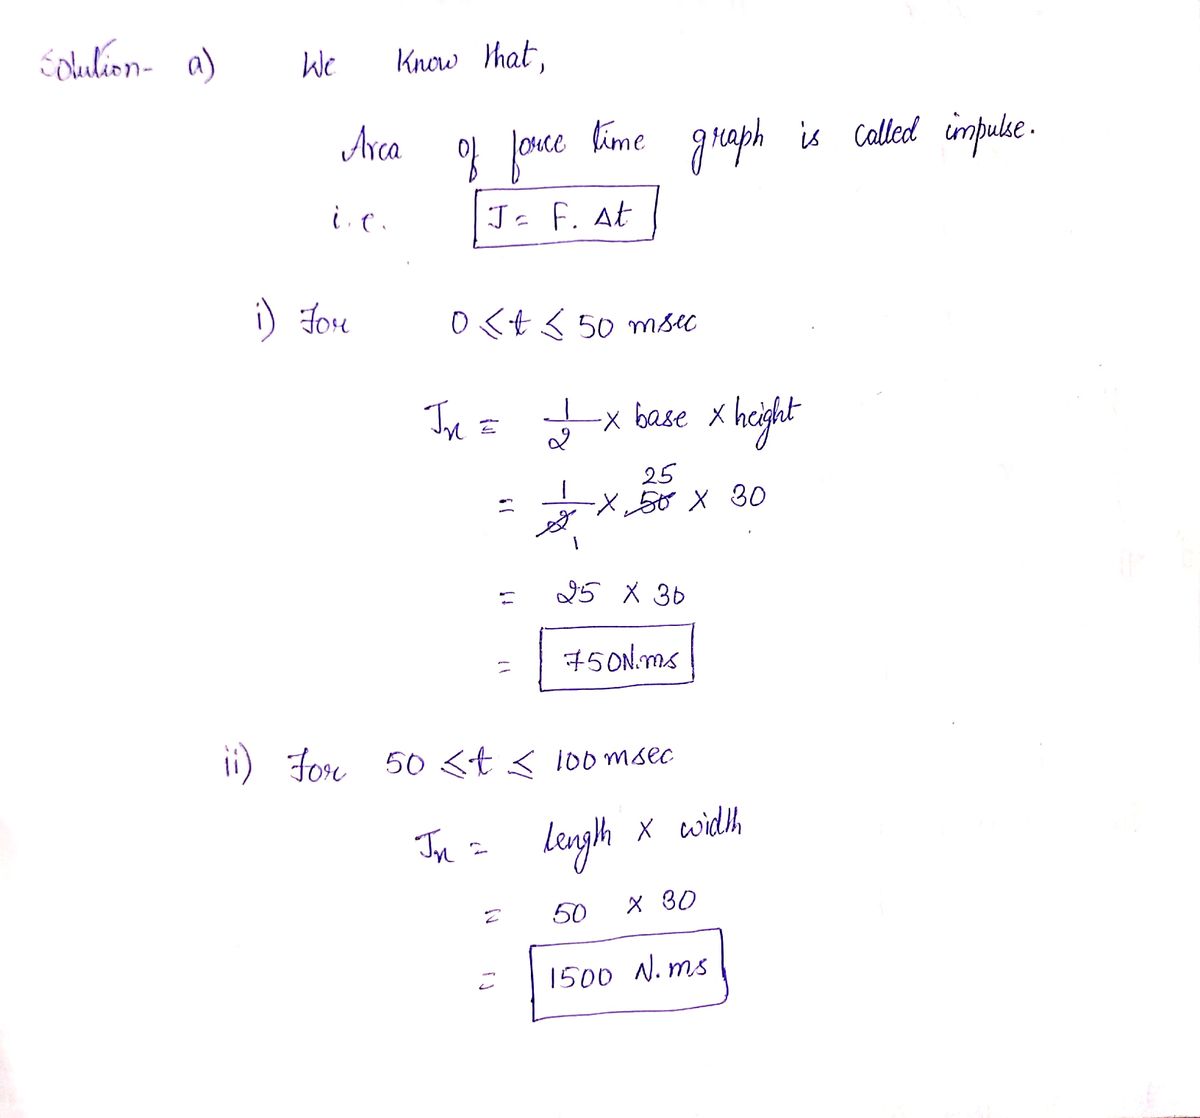 Solution- a) We Know that,
Area of force time graph is called impulse.
i.e. J = F. Δt
i) For 0 ≤ t ≤ 50 msec
Jx = 1/2 x base x height
= 1/2 x 50 x 30
25
1
= 25 x 30
= 750N.ms
ii) For 50 ≤ t ≤ 100 msec
Jx = length x width
= 50 x 30
= 1500 N.ms